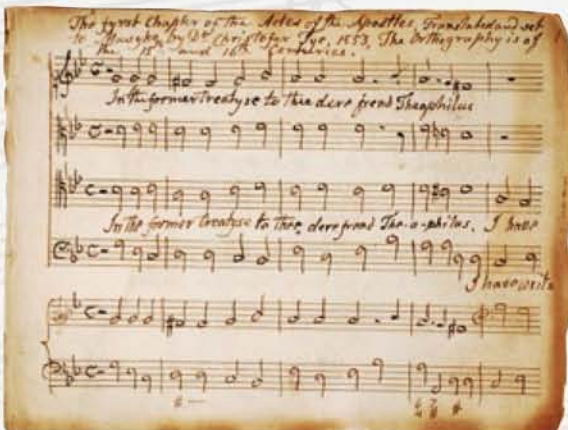 The fyrst Chapter of the Actes of the Apostles, Translated and set
to Musyke, by Dr Christofer Tye, 1553. The Orthography is of
the 15th and 16th Centuries.
In the former treatyse to thee dere frend Theophilus
In the former treatyse to thee, dere frend The-o-philus, I have
I have write